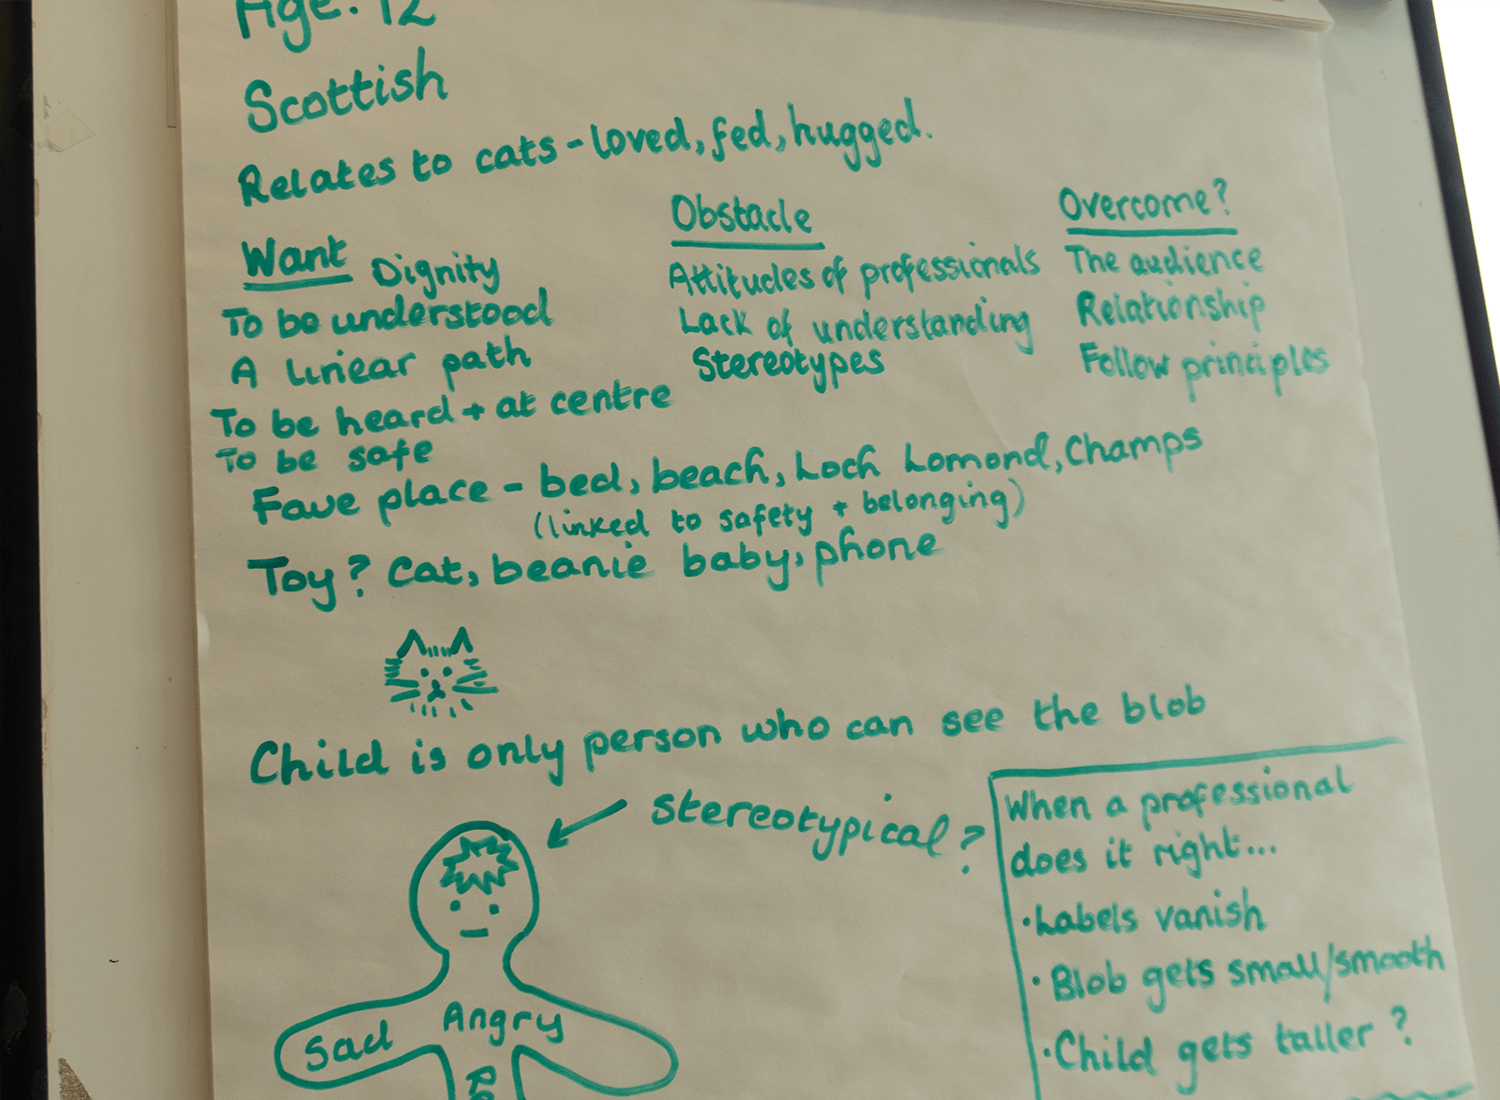 Age: 12
Scottish
Relates to cats - loved, fed, hugged.
Want Dignity
To be understood
A linear path
To be heard + at centre
To be safe
Obstacle
Attitudes of professionals
Lack of understanding
Stereotypes
Overcome?
The audience
Relationship
Follow principles
Fave place - bed, beach, Loch Lomond, Champs
(linked to safety + belonging)
Toy? Cat, beanie baby, phone
Child is only person who can see the blob
Stereotypical?
Sad Angry
When a professional
does it right...
• Labels vanish
• Blob gets small/smooth
• Child gets taller?